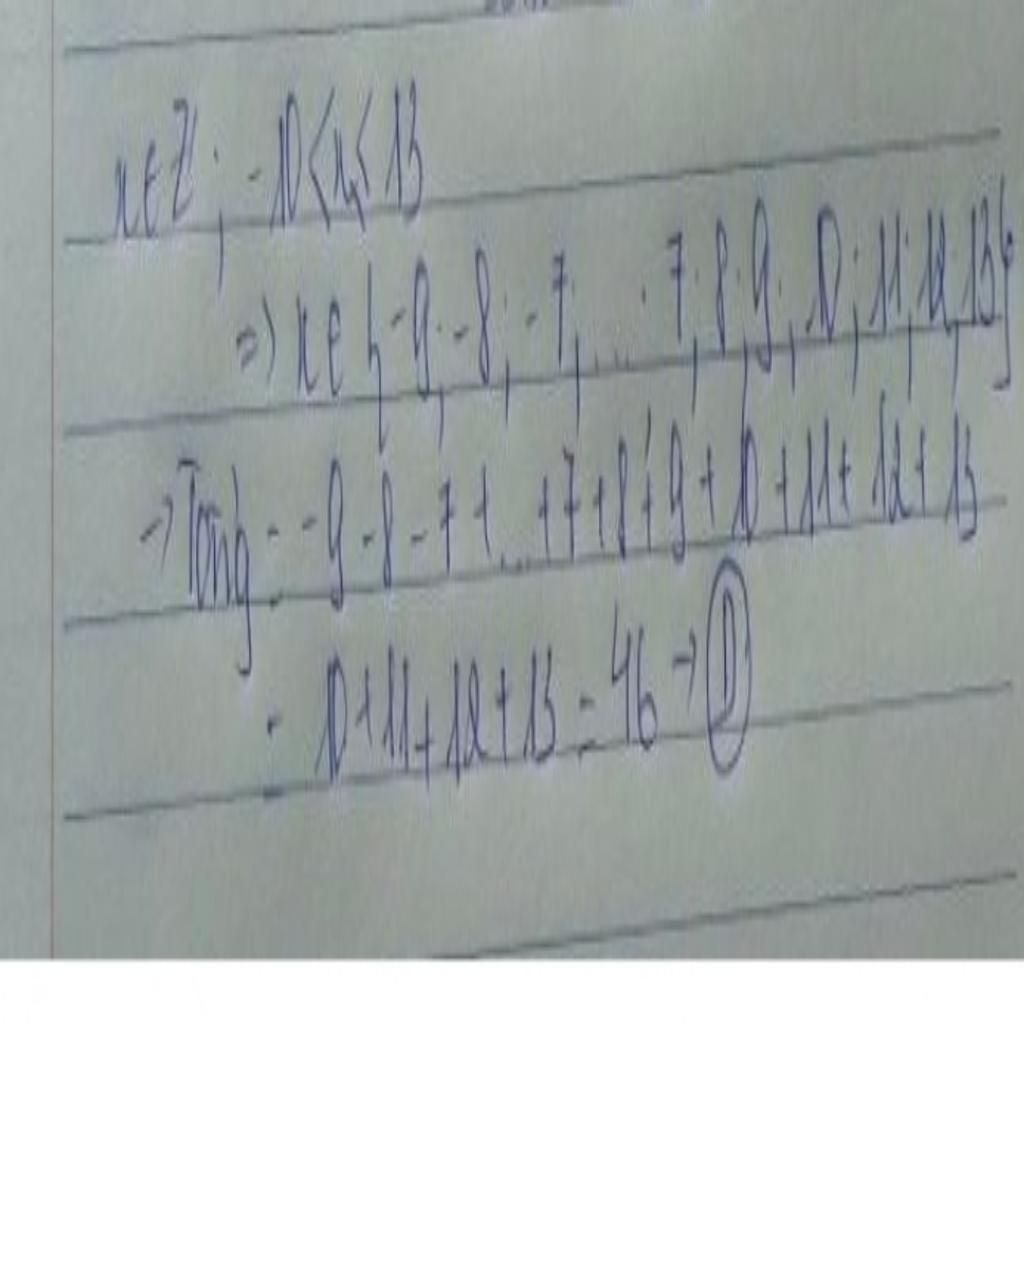 x ∈ Z; -10 < x ≤ 13
=> x ∈ {-9; -8; -7; ... 7; 8; 9; 10; 11; 12; 13}
-> Tổng = -9 - 8 - 7 + ... + 7 + 8 + 9 + 10 + 11 + 12 + 13
= 10 + 11 + 12 + 13 = 46 -> D